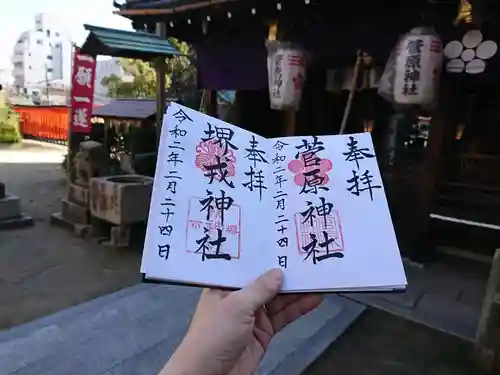 奉拝
菅原神社
令和二年二月二十四日
奉拝
堺戎神社
令和二年二月二十四日
菅原神社